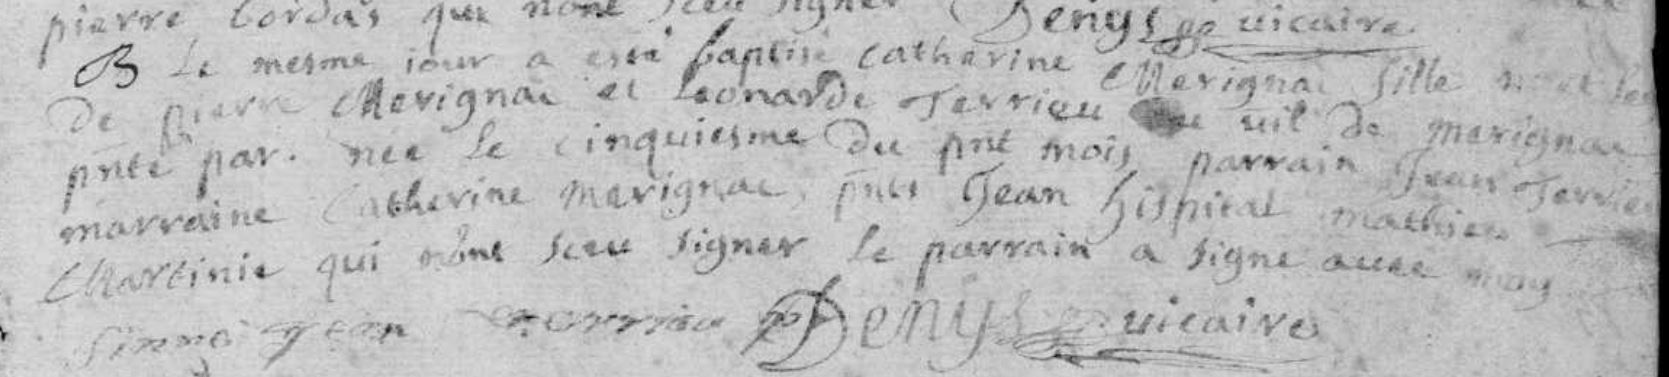 pierre Cordas qui n'ont sceu signer Denys vicaire
B Le mesme iour a esté baptisé Catherine Merignac fille nat et leg
De pierre Merignac et Leonarde Terrieu du vil de merignac
pnte par. née le cinquiesme du pnt mois, parrain Jean Terrieu
marraine Catherine merignac, pnts Jean hispital mathieu
Martinie qui n'ont sceu signer le parrain a signe avec moy
Jean Terrieu Denys vicaire